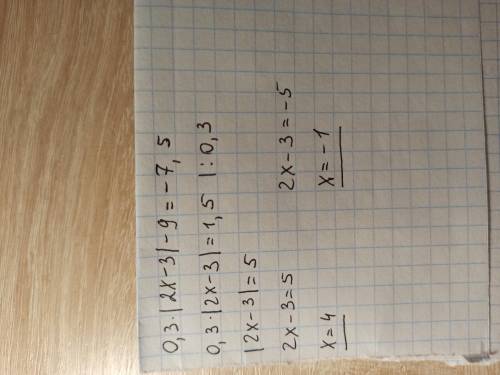 0,3·|2x-3|-9=-7,5
0,3·|2x-3|=1,5 |:0,3
|2x-3|=5
2x-3=5 2x-3=-5
x=4 x=-1